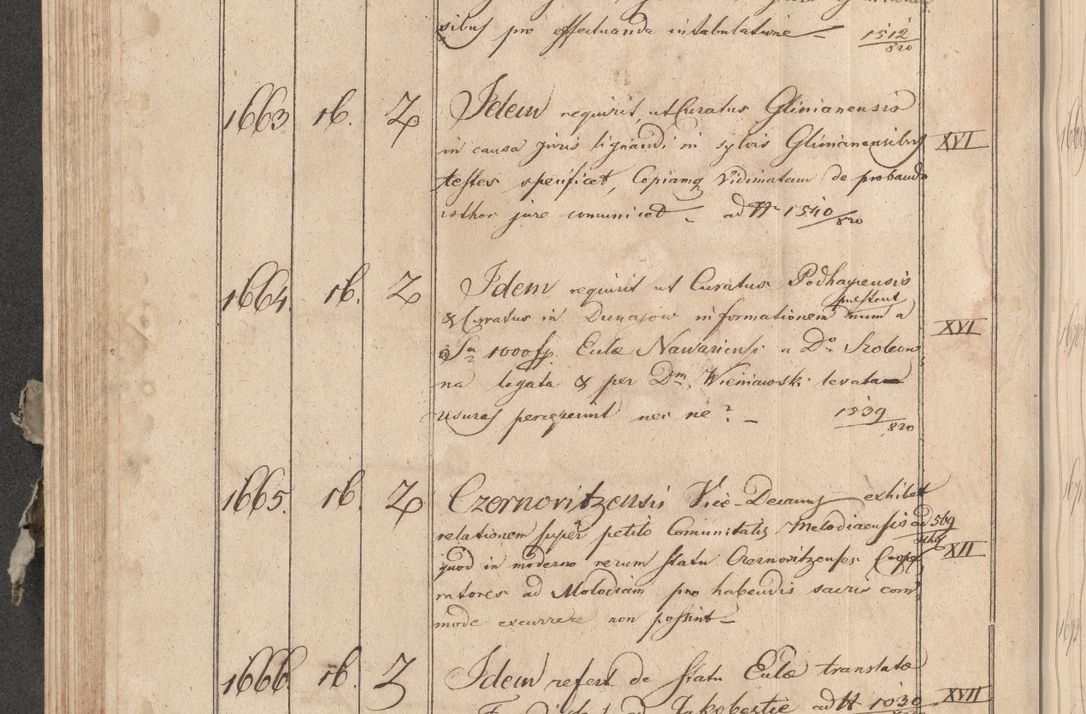 sibus pro effectuanda intabulatione – 1512/820
1663. 16. Z Idem requirit, ut Curatus Glinianensis
in causa juris lignandi in sylvis Glinianensibus XVI
testes specificet, Copiamq vidimatam de probando
isthoc jure comunicet – ad N 1540/820
1664. 16. Z Idem requirit ut Curatus Podhayensis
& Curatus in Dunajow informationem praestent num a
Sa 1000 fl. Ecclae Nawariensi a Do XVI
na legata & per Dm Wieniawski levata
usuras perceperint nec ne? – 1539/820
1665. 16. Z Czernovitzensis Vice-Decanus exhibet
relationem super petito Comunitatis Melodiaensis ad 569
quod in moderno rerum statu Czernovitzenses Coope XII
ratores ad Molodiam pro habendis sacris com
mode excurrere non possint –
1666. 16. Z Idem refert de statu Eclae translatae
Jakobestie ad N 1030 XVII